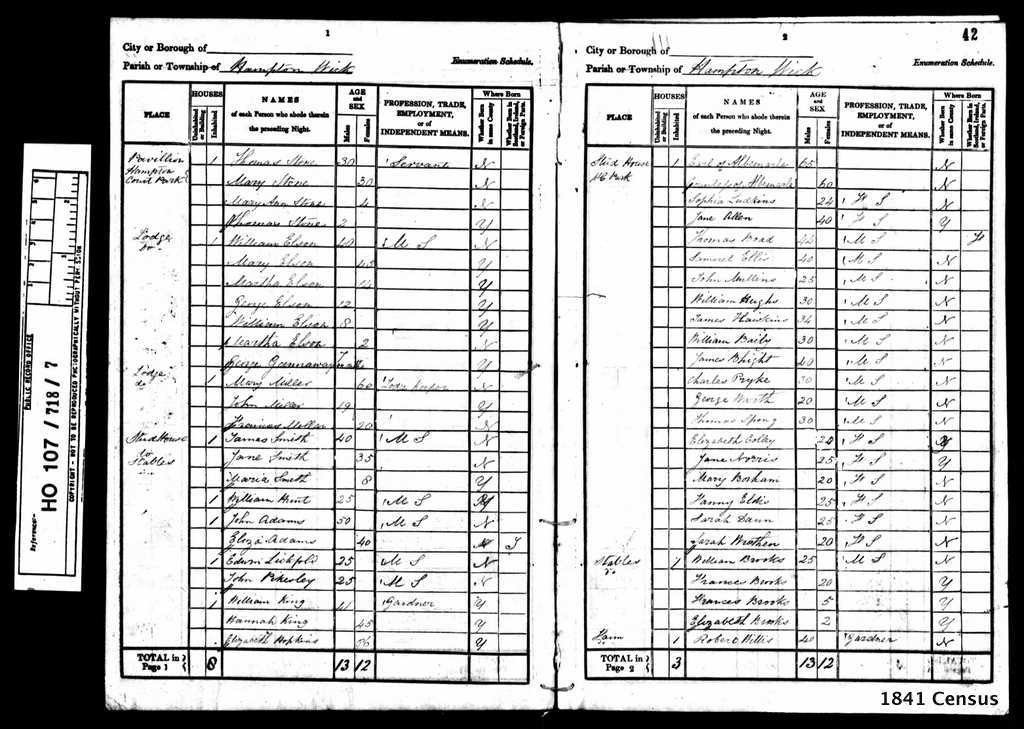 1
City or Borough of
Parish or Township of Hampton Wick
Enumeration Schedule.
PLACE
HOUSES
Uninhabited or Building
Inhabited
NAMES
of each Person who abode therein
the preceding Night.
AGE
and
SEX
Males
Females
PROFESSION, TRADE,
EMPLOYMENT,
or of
INDEPENDENT MEANS.
Where Born
Whether Born in same County
Whether Born in Scotland, Ireland, or Foreign Parts.
Pavillion 1 Thomas Stone 30 Servant N
Hampton
Court Park Mary Stone 30 N
Mary Ann Stone 4 N
Thomas Stone 2 Y
Lodge 1 William Elson 40 M S N
do Mary Elson 45 Y
Martha Elson 14 Y
George Elson 12 Y
William Elson 8 Y
Martha Elson 2 N
George Y
Lodge 1 Mary Miller 60 Lodge Keeper N
do
John Miller 19 Y
20 N
Stud House 1 James Smith 40 M S N
Stables Jane Smith 35 N
Maria Smith 8 Y
1 William Hunt 25 M S
1 John Adams 50 M S N
Eliza Adams 40 I
1 Edwin Lickfold 25 M S N
John 25 M S N
1 William King 41 Gardner Y
Hannah King 45 Y
Elizabeth Hopkins 76 Y
TOTAL in
Page 1 8 13 12
2
42
City or Borough of
Parish or Township of Hampton Wick
Enumeration Schedule.
PLACE
HOUSES
Uninhabited or Building
Inhabited
NAMES
of each Person who abode therein
the preceding Night.
AGE
and
SEX
Males
Females
PROFESSION, TRADE,
EMPLOYMENT,
or of
INDEPENDENT MEANS.
Where Born
Whether Born in same County
Whether Born in Scotland, Ireland, or Foreign Parts.
Stud House 1 Earl of Albemarle 65 N
H C Park
Countess of Albemarle 60 N
Sophia Ludkins 24 F S N
Jane Allen 40 F S Y
Thomas M S
Samuel Ellis 40 M S N
John Mullins 25 M S N
William Heighs 30 M S N
James Hawkins 34 M S N
William Baily 30 M S N
James 40 M S N
Charles Pryke 30 M S N
George Worth 20 M S N
Thomas Spong 30 M S N
Elizabeth 20 F S
Jane Norris 25 F S Y
Mary Bonham 20 F S N
Fanny 25 F S N
Sarah Dawn 25 F S N
Sarah 20 F S N
Stables William Brooks 25 M S N
do
Frances Brooks 20 Y
Frances Brooks 5 Y
Elizabeth Brooks 2 Y
Farm 1 Robert Willis 40 Gardner N
TOTAL in
Page 2 3 13 12
PUBLIC RECORD OFFICE
Reference:-
HO 107 / 718 / 7
COPYRIGHT - NOT TO BE REPRODUCED PHOTOGRAPHICALLY WITHOUT PERMISSION
1841 Census